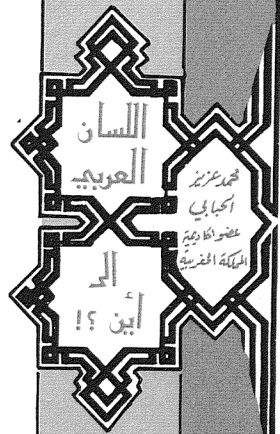 اللسان
العربي
الى
أين ؟!
محمد عزيز
الحبابي
عضو أكاديمية
المملكة المغربية